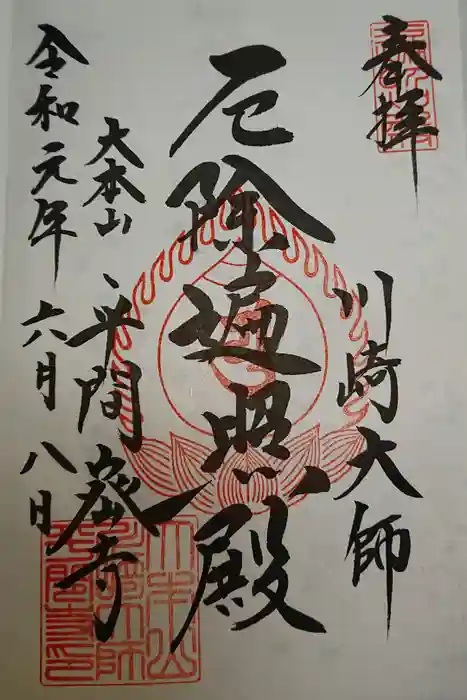 奉拝
川崎大師
厄除遍照殿
大本山
平間寺
令和元年六月八日